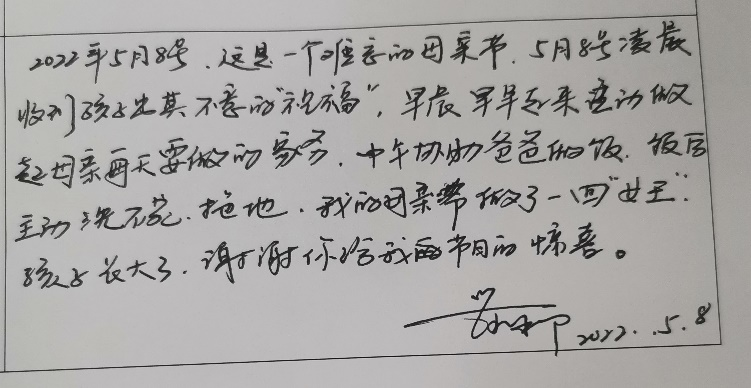 2022年5月8号，这是一个难忘的母亲节，5月8号凌晨
收到孩子出其不意的“祝福”，早晨早早起来主动做
起母亲每天要做的家务，中午协助爸爸做饭，饭后
主动洗碗、拖地，我的母亲节做了一回“女王”.
孩子长大了，谢谢你给我的节日的惊喜。
2022..5.8